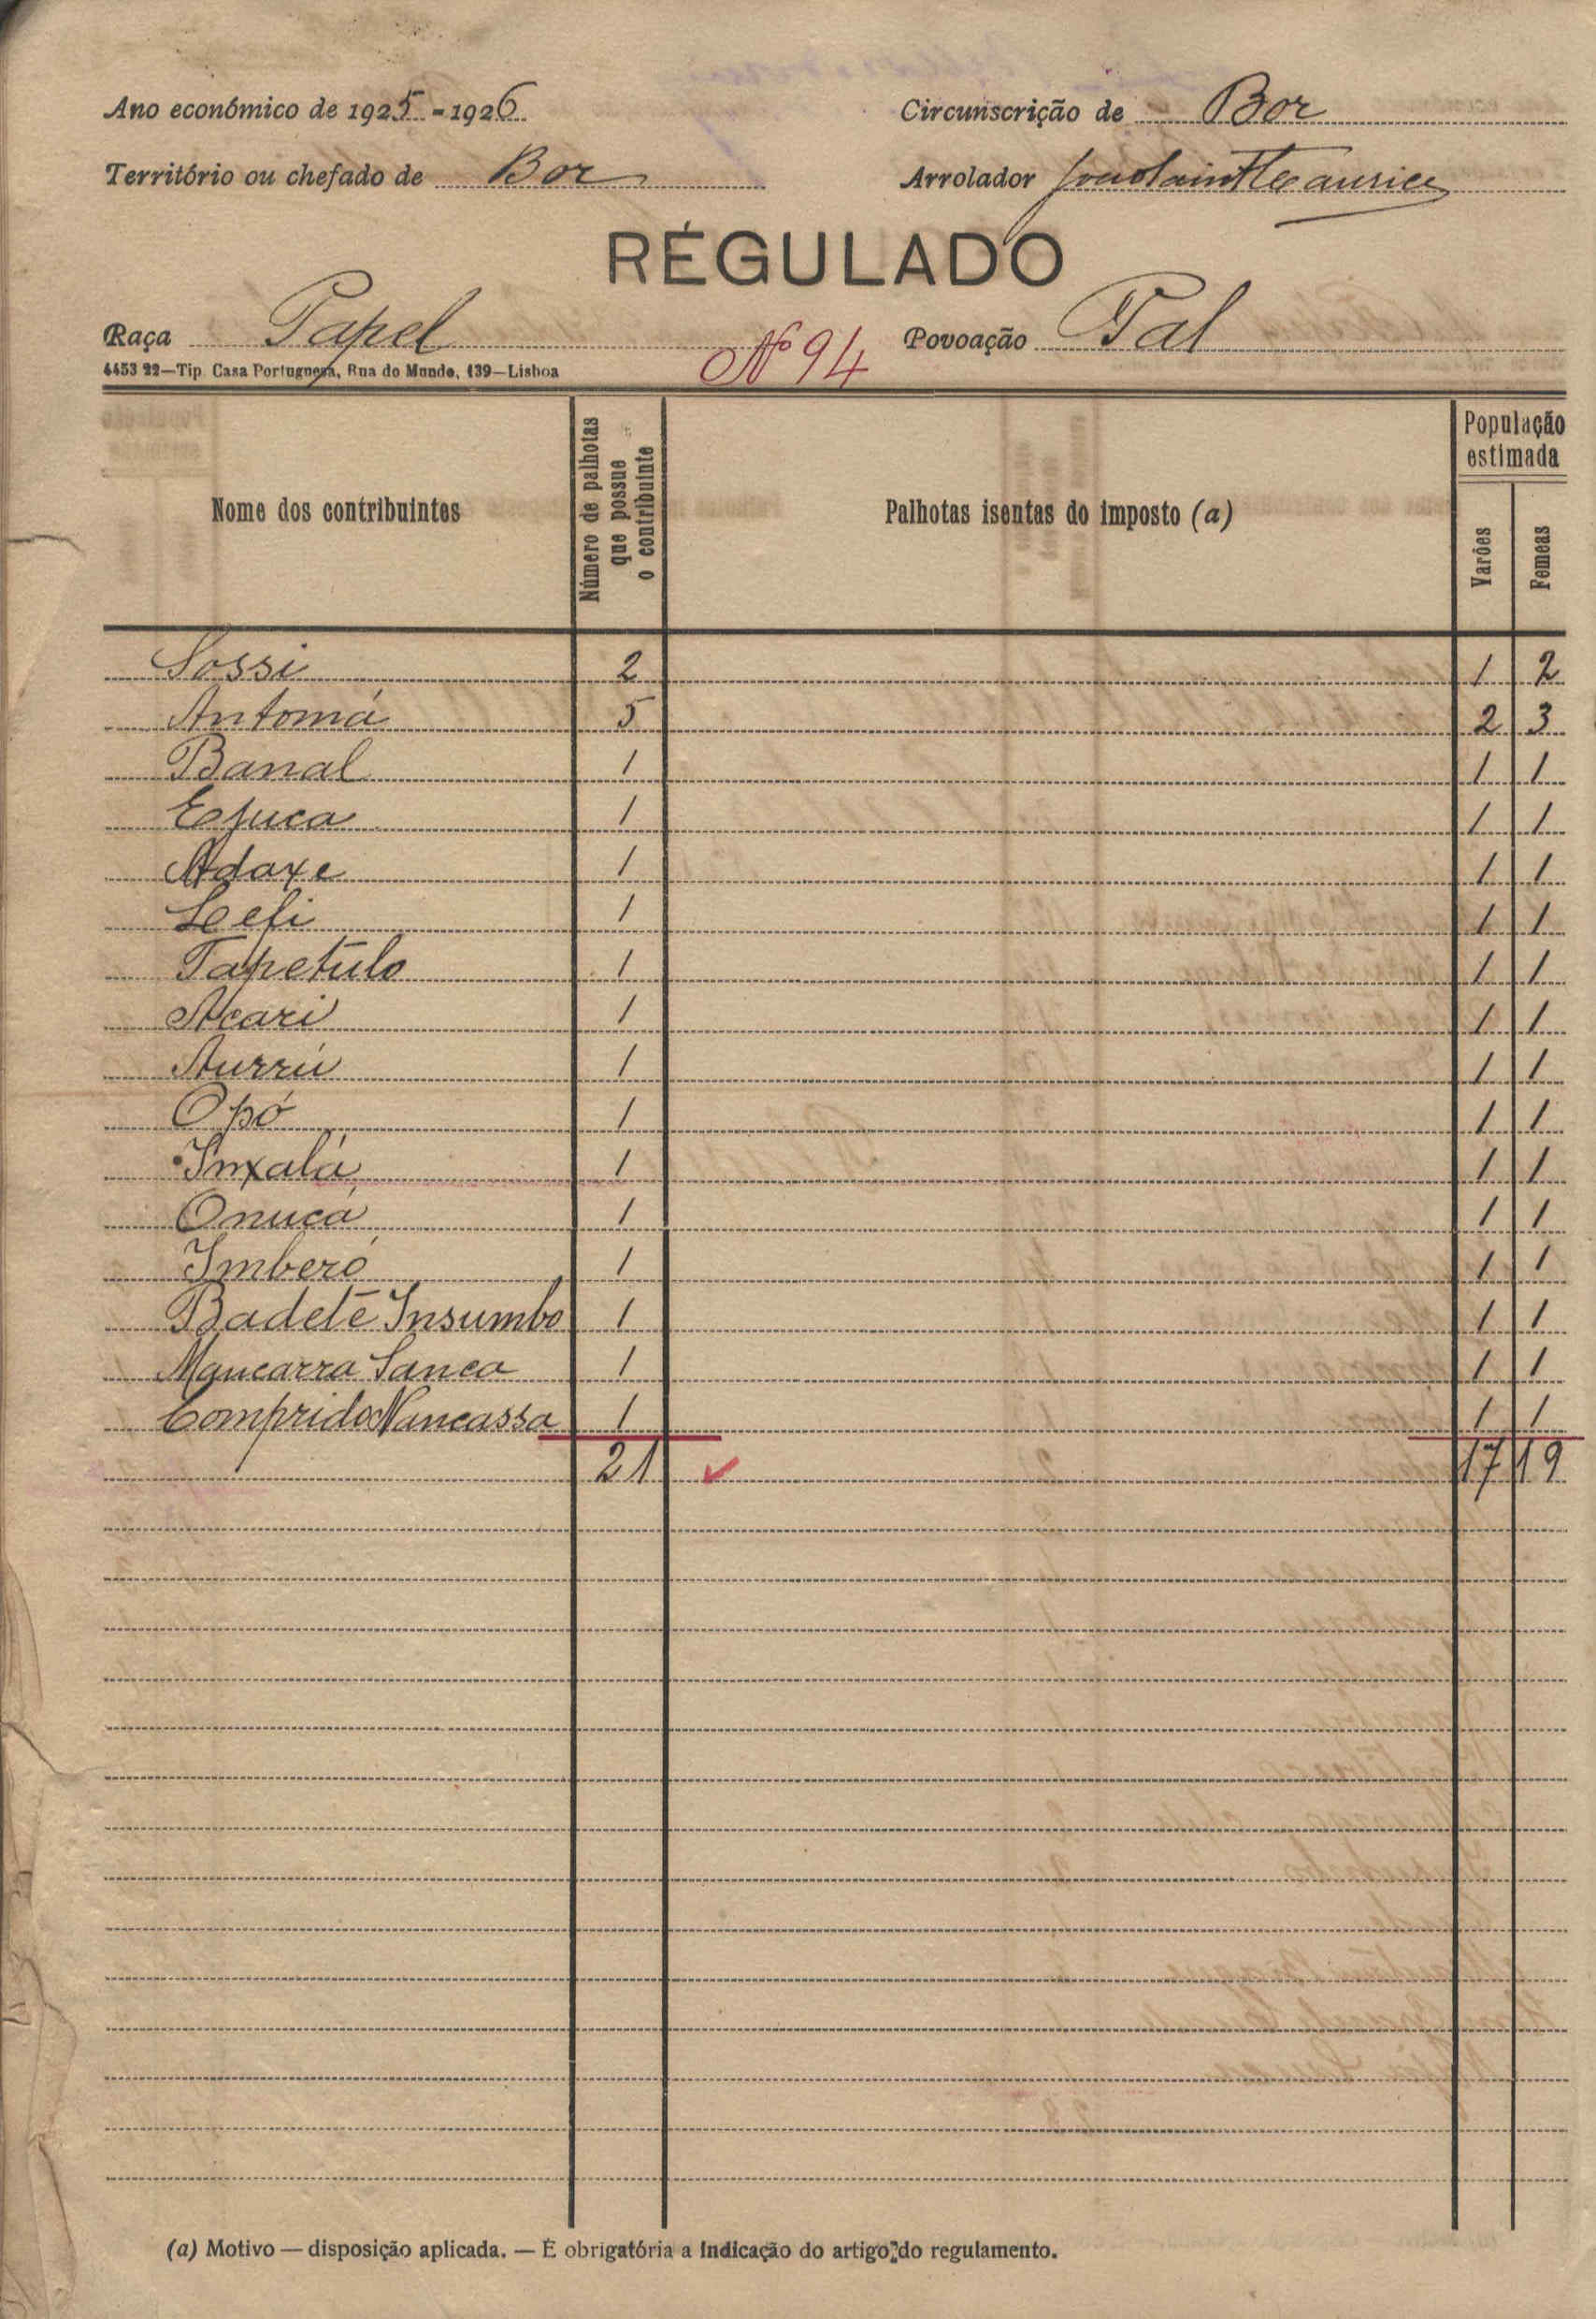 Ano económico de 1925-1926
Circunscrição de Bor
Território ou chefado de Bor
Arrolador
RÉGULADO
Raça Papel
Nº 94
Povoação Tal
4453 22—Tip. Casa Portuguesa, Rua do Mundo, 139—Lisboa
Nome dos contribuintes
Número de palhotas que possue o contribuinte
Palhotas isentas do imposto (a)
População estimada
Varões
Femeas
Sossi 2 1 2
Antomá 5 2 3
Banal 1 1 1
Ejuca 1 1 1
Adaxe 1 1 1
1 1 1
Tapetulo 1 1 1
Acari 1 1 1
Aurrú 1 1 1
Opó 1 1 1
Inxalá 1 1 1
Onucá 1 1 1
Imberó 1 1 1
Badeté Insumbo 1 1 1
Mancarra Sanca 1 1 1
Comprido Nancassa 1 1 1
21 17 19
(a) Motivo — disposição aplicada. — É obrigatória a indicação do artigo do regulamento.